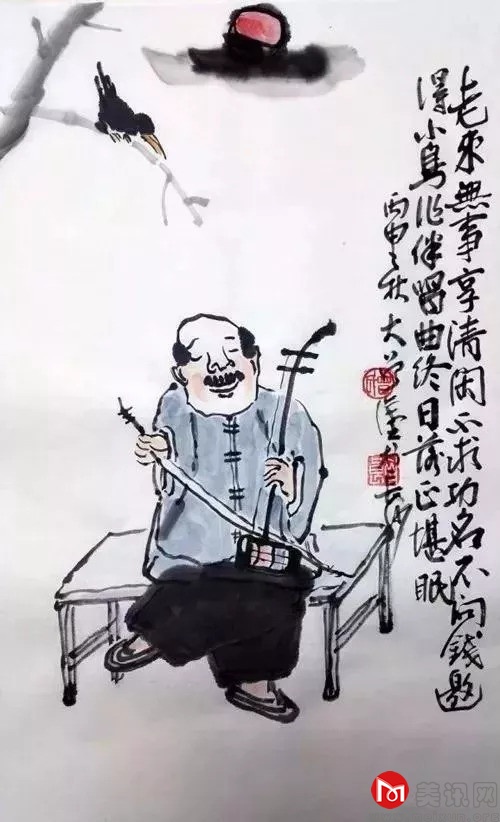 老來無事享清闲不求功名不问錢邀
得小鳥作伴唱曲終日落正堪眠
丙申之秋大
美讯网